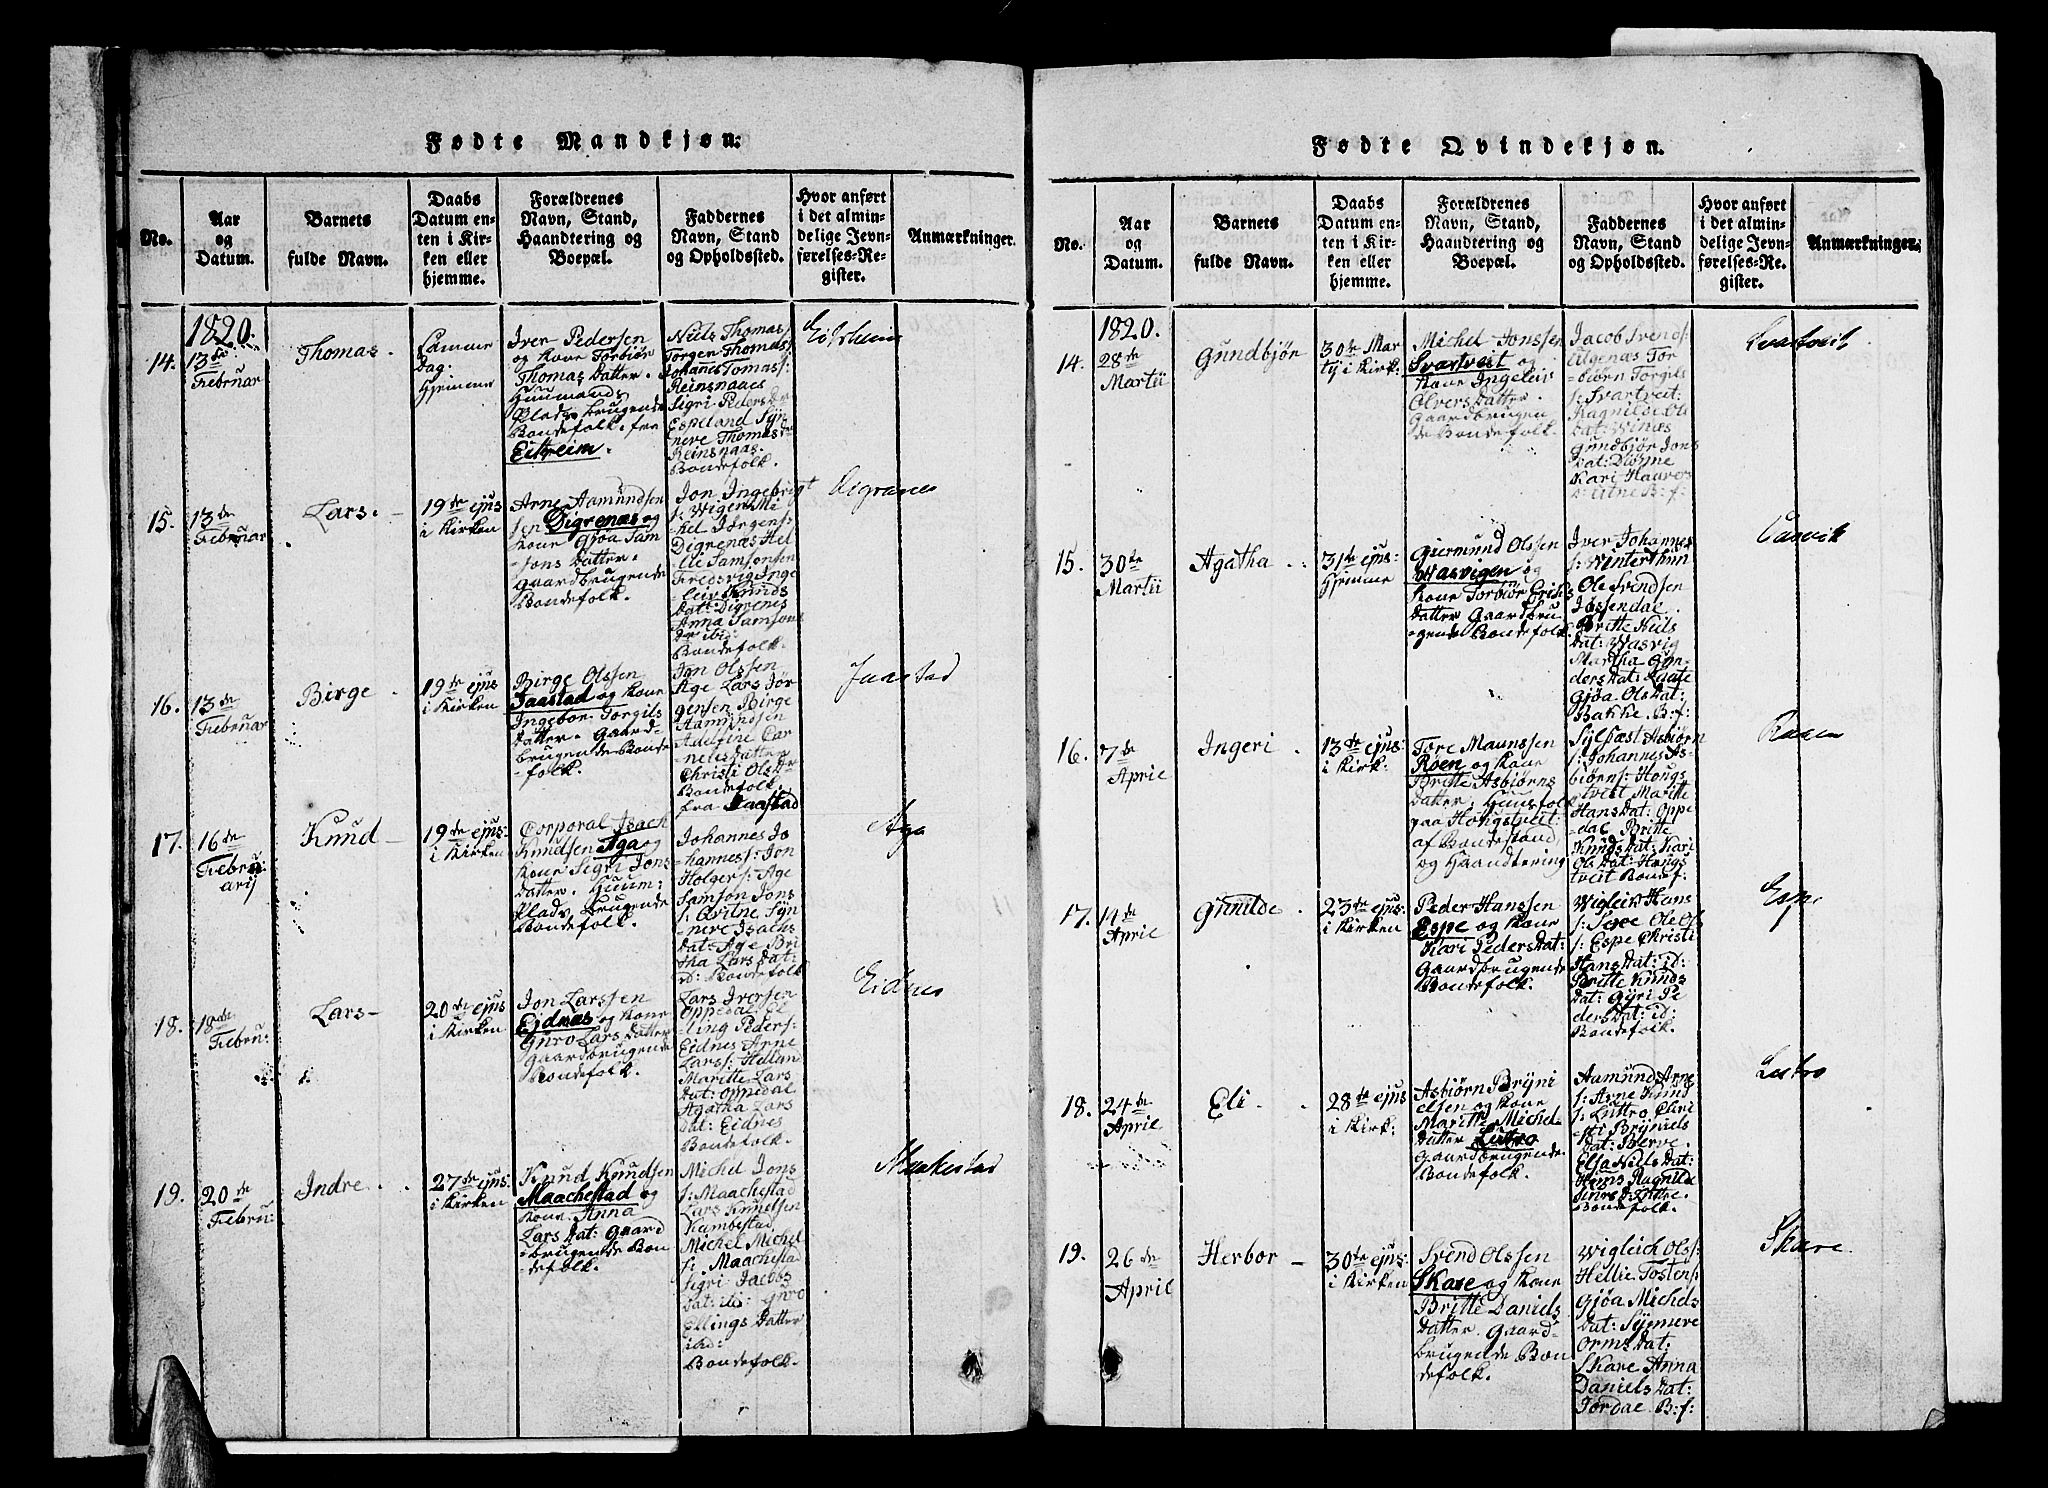 Fødte Mandkjøn.
No.
Aar
og
Datum.
Barnets
fulde Navn.
Daabs
Datum en-
ten i Kir-
ken eller
hjemme.
Forældrenes
Navn, Stand,
Haandtering og
Boepæl.
Faddernes
Navn, Stand
og Opholdssted.
Hvor anført
i det almin-
delige Jevn-
førelses-Re-
gister.
Anmærkninger.
1820.
14.
13de
Februar
Thomas.
Samme
Dag:
Hjemme
Iver Pedersen
og Kone Torbiør
Thomas Datter.
Huumands
Plads brugende
Bondefolk. fra
Eitreim.
Niels Thomas
Torgen Thomas
Johanes Tomas:
Reinsnaaes
Sigri Peders Dr
Espeland Syn
neve Thomas Dr
Reinsnaas.
Bondefolk.
Eitrheim
15.
13de
Februar
Lars.
19de ejus
i Kirken
Arne Aamundsen
sen Digrenæs og
Kone Gjøa Sam
sons Datter.
Gaardbrugende
Bondefolk.
Jon Ingebrigt
s: Wigen Mi
kel Jørgens:
Digrenæs Hel
lie Samsonsen
Fredsvig Inge
leiv Knuds
Dat: Digrenes
Anna Samsons
Dr ibi:
Bondefolk.
Digranes
16.
13de
Februar
Birge
19de ejus
i Kirken
Birge Olssen
Jaastad og Kone
Ingebor Torgils
Datter. Gaard-
brugende Bonde
-folk.
Jon Olssen
Age Lars Jør
gensen Birge
Aamundsen
Adelfine Cor
nelis datter
Christi Ols Dr
Bondefolk.
fra Jaastad
Jaastad
17.
16de
Febru
arij
Knud
19de ejus:
i Kirken
Corporal Isach
Knudsen Aga og
Kone Sigri Jons
Datter. Huum:
Plads brugende
Bondefolk.
Johannes Jo
-hanness: Jon
Holgers: Age
Samson Jons
s: Qvitne Syn
neve Isachs
Dat: Age Bri
tha Lars Dat:
id: Bondefolk
Aga
18.
18de
Febru:
Lars
20de ejus
i Kirken
Jon Larssen
Ejdnæs og Kone
Guro Lars Datter
Gaardbrugende
Bondefolk.
Lars Iversen
Oppedal El
ling Peders:
Eidnes Arne
Larss: Hellan
Maritte Lars
Dat: Oppedal
Agatha Lars
Dat: Eidnes
Bondefolk.
Eidnes
19.
20de
Febru:
Indre.
27de ejus:
i Kirken
Knud Knudsen
Maachestad og
Kone Anna
Lars Dat: Gaard
-brugende Bon
defolk.
Michel Jons
s: Maachestad
Lars Knudsen
Kambestad
Michel Michel
s: Maachestad
Sigri Jacobs
Dat: ibi: Guro
Ellings Datter
ibi:
Bondefolk.
Maakestad
Fødte Qvindekjøn.
No.
Aar
og
Datum.
Barnets
fulde Navn.
Daabs
Datum en-
ten i Kir-
ken eller
hjemme.
Forældrenes
Navn, Stand,
Haandtering og
Boepæl.
Faddernes
Navn, Stand
og Opholdssted.
Hvor anført
i det almin-
delige Jevn-
førelses-Re-
gister.
Anmærkninger.
1820.
14.
28de
Martii
Gundbjør
30te Mar
tij i Kirk:
Michel Jonssen
Svartveit og
Kone Ingeleiv
Olvers Datter.
Gaardbrugen
de Bondefolk.
Jacob Svends
Tor
-biørn Torgils
s: Svartveit:
Ragnilde Ols
Dat: Winæs
Gundbjør Jons
Dat: Diønne
Kari Haavers
D: Utne B: f:
Svartveit
15.
30te
Martii
Agatha.
31te ejus:
Hjemme
Giermund Olssen
Wasvigen og
Kone Torbiør Erichs
Datter Gaardbru
-gende Bondefolk.
Iver Johannes
s: Winterthun
Ole Svendsen
Jøssendal.
Britte Niels
Dat: Wasvig
Martha Gun-
ders Dat:
Gjøa Ols Dat:
Bakke. B: f:
Vasvik
16.
7de
April
Ingeri
13de ejus:
i Kirk:
Tore Maunssen
Roen og Kone
Britte Asbiørns
Datter. Huusfolk
paa Hougstveit:
af Bondestand,
og Haandtering
Sylfæst Asbiørn
s: Johannes As-
biørns: Hougs
tveit Maritte
Hans Dat: Oppe
dal Britte
Knuds Dat: Kari
Ols Dat: Hougs
tveit Bondef:
Raaen
17.
14de
April
Gunilde
23de ejus:
i Kirken
Peder Hanssen
Espe og Kone
Kari Peders Dat:
Gaardbrugende
Bondefolk.
Wigleiv Hans
s: Sexe Ole Ols
s: Espe Christi
Hans Dat: id:
Britte Knuds
Dat: Gyri Pe
ders Dat: id:
Bondefolk.
Espe
18.
24de
April
Eli.
28de ejus
i Kirk:
Asbiørn Bryni
elsen og Kone
Maritte Michel-
datter Lutro
Gaardbrugende.
Bondefolk.
Aamund Arne
s: Arne Knud
s: Luttro Chri
sti Bryniels
Dat: Berve.
Elsa Niels Dat:
Hemis Ragnilde
Bondefolk.
Lutro
19.
26de
April
Herbor
30te ejus:
i Kirken
Svend Olssen
Skare og Kone
Britte Daniels
Datter. Gaard-
brugende Bon
defolk.
Wigleich Olss:
Hellie Tostens:
Gjøa Michels
Dat: Synneve
Orms Dat:
Skare Anna
Daniels Dat:
Jordal B: f:
Skare